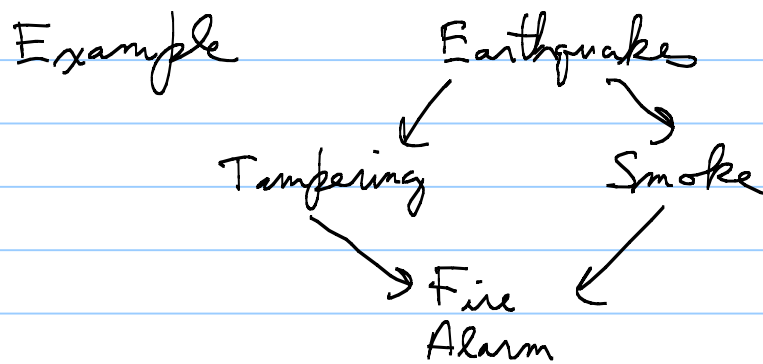 Example
Earthquakes
Tampering
Smoke
Fire
Alarm